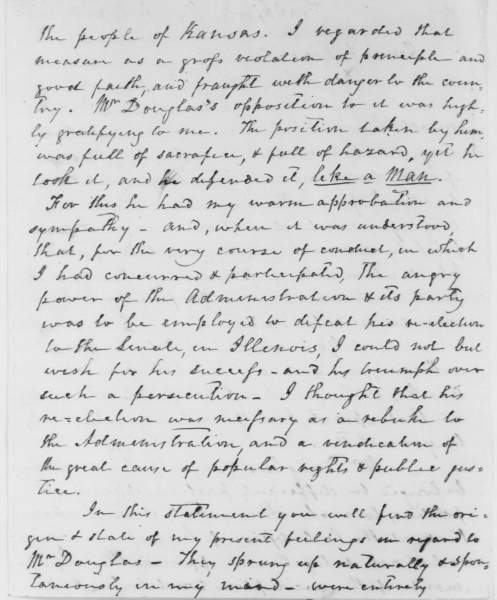 the people of Kansas. I regarded that
measure as a gross violation of principle and
good faith, and fraught with danger to the coun-
try. Mr Douglas's opposition to it was high-
ly gratifying to me. The position taken by him
was full of sacrafice, & full of hazard, yet he
took it, and he defended it, like a Man.
For this he had my warm approbation and
sympathy - and, when it was understood,
that, for the very course of conduct, in which
I had concurred & participated, The angry
power of the Administration & its party
was to be employed to defeat his re-election
to the Senate, in Illinois, I could not but
wish for his success - and his triumph over
such a persecution - I thought that his
re=election was necessary as a rebuke to
the Administration, and a vindication of
the great cause of popular rights & public jus-
tice.
In this statement you will find the ori-
gin & state of my present feelings in regard to
Mr Douglas - They sprung up naturally & spon-
taneously in my mind - were entirely